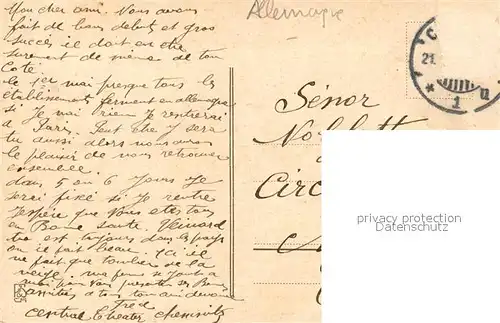 Allemagne
Mon cher ami. Nous avons
fait de bons debuts et gros
succès il doit en etre
surement de même de ton
Coté
le 1er mai presque tous les
établissements ferment en allemagne
si J'ai rien Je rentrerai
a Paris. Peut être y sera
tu aussi alors nous aurons
le plaisir de nous retrouver
ensemble.
dans 5 ou 6 Jours Je
serai fixé si Je rentre
J'espère que Vous etes tous
en Bonne Santé.
est toujours dans les pays
ou il fait beau. Ici il
ne fait que tomber de la
neige. ma femme se Joint a
moi pour vous presenter ses Bonnes
amitiés a tous ton ami devoué
Fred
central Theater Chemnitz
Sénor
Circ
21.
1
privacy protection
Datenschutz